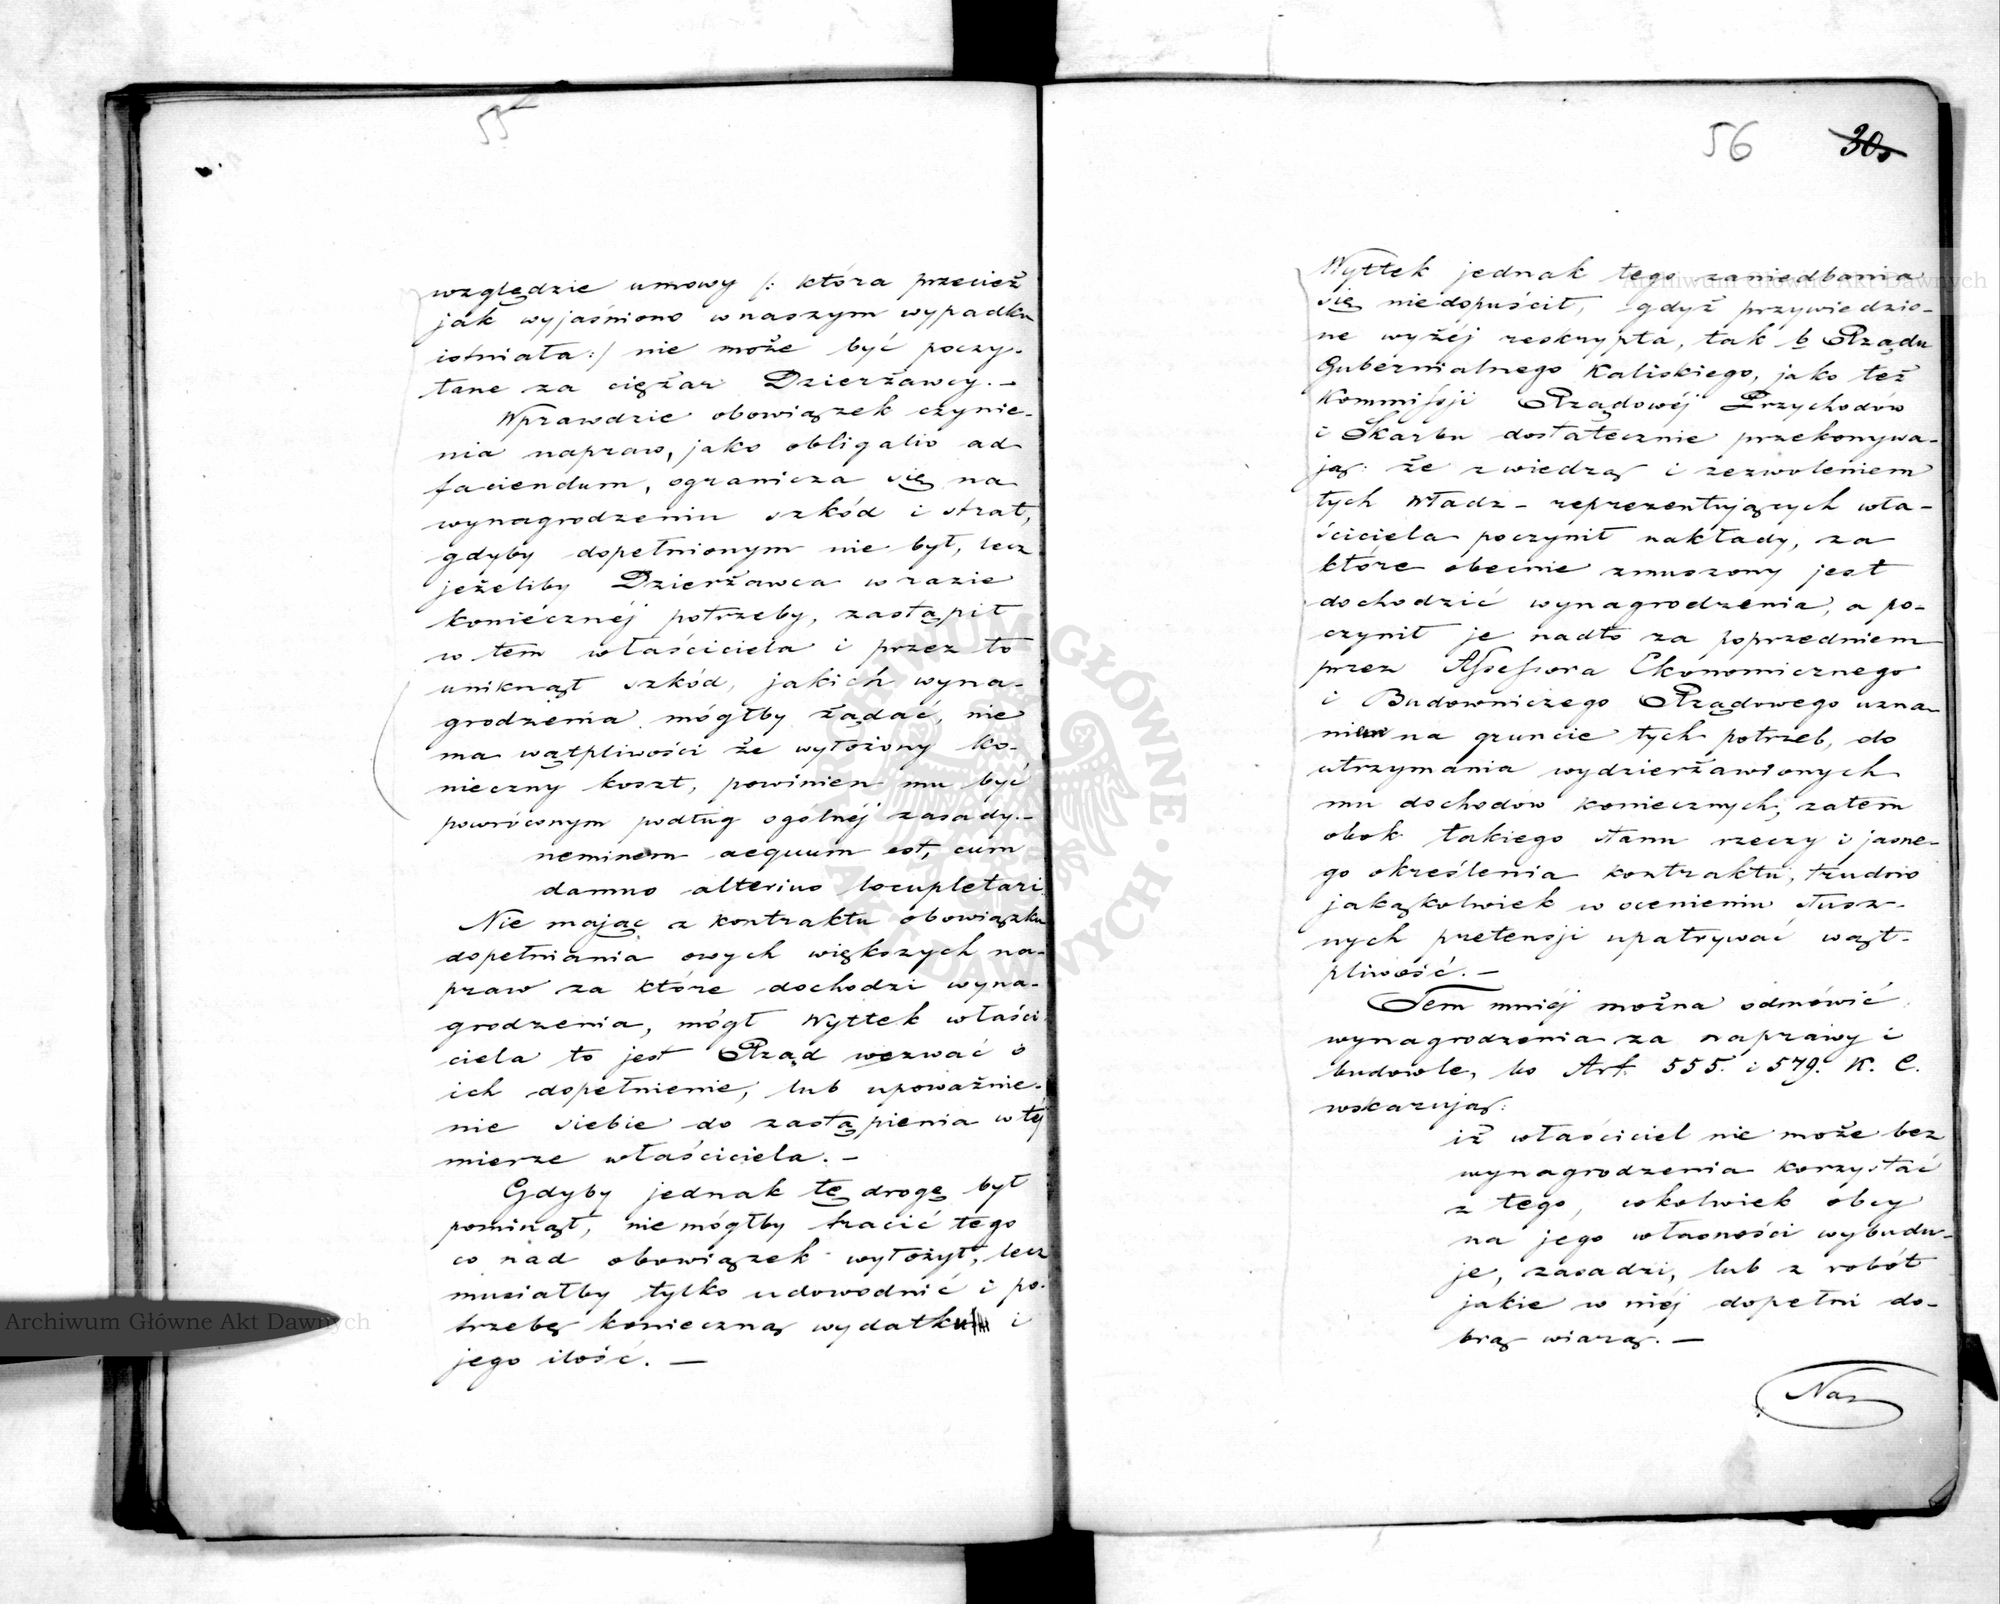 55
względzie umowy /: która przecież
jak wyjaśniono w naszym wypadku
istniała :/ nie może być poczy-
tane za ciężar Dzierżawcy. —
Wprawdzie obowiązek czynie-
nia napraw, jako obligatio ad
faciendum, ogranicza się na
wynagrodzeniu szkód i strat,
gdyby dopełnionym nie był, lecz
jeżeliby Dzierżawca w razie
koniécznéj potrzeby, zastąpił
w tem właściciela i przez to
uniknął szkód, jakich wyna-
grodzenia mógłby żądać, nie
ma wątpliwości że wyłożony ko-
nieczny koszt, powinien mu być
powróconym podług ogólnéj zasady. —
neminem aequum est, cum
damno alterius locupletari
Nie mając z kontraktu obowiązku
dopełniania owych większych na-
praw za które dochodzi wyna-
grodzenia, mógł Wyttek właści-
ciela to jest Rząd wezwać o
ich dopełnienie, lub upoważnie-
nie siebie do zastąpienia w téj
mierze właściciela. —
Gdyby jednak tę drogę był
pominął, nie mógłby tracić tego
co nad obowiązek wyłożył, lecz
musiałby tylko udowodnić i po-
trzebę konieczną wydatku i
jego ilość. —
56 30.
Wyttek jednak tego zaniedbania
się niedopuścił, gdyż przywiedzio-
ne wyżéj reskrypta, tak b Rządu
Gubérnialnego Kaliskiego, jako też
Kommissji Rządowéj Przychodów
i Skarbu dostatecznie przekonywa-
ją: że z wiedzą i zezwoleniem
tych Władz – reprezentujących wła-
ściciela poczynił nakłady, za
które obecnie zmuszony jest
dochodzić wynagrodzenia, a po-
czynił je nadto za poprzedniem
przez Assessora Ekonomicznego
i Budowniczego Rządowego uzna-
niem na gruncie tych potrzeb, do
utrzymania wydzierżawionych
mu dochodów koniecznych; zatem
obok takiego stanu rzeczy i jasne-
go określenia kontraktu, trudno
jakąkolwiek w ocenieniu słusz-
nych pretensji upatrywać wąt-
pliwość. —
Tem mniéj można odmówić
wynagrodzenia za naprawy i
budowle, bo Art. 555. i 579. K. C.
wskazują:
iż właściciel nie może bez
wynagrodzenia korzystać
z tego, cokolwiek obcy
na jego własności wybudu-
je, zasadzi, lub z robót
jakie w niéj dopełni do-
brą wiarą. —
Naz
Archiwum Główne Akt Dawnych
Archiwum Główne Akt Dawnych
ARCHIWUM GŁÓWNE AKT DAWNYCH